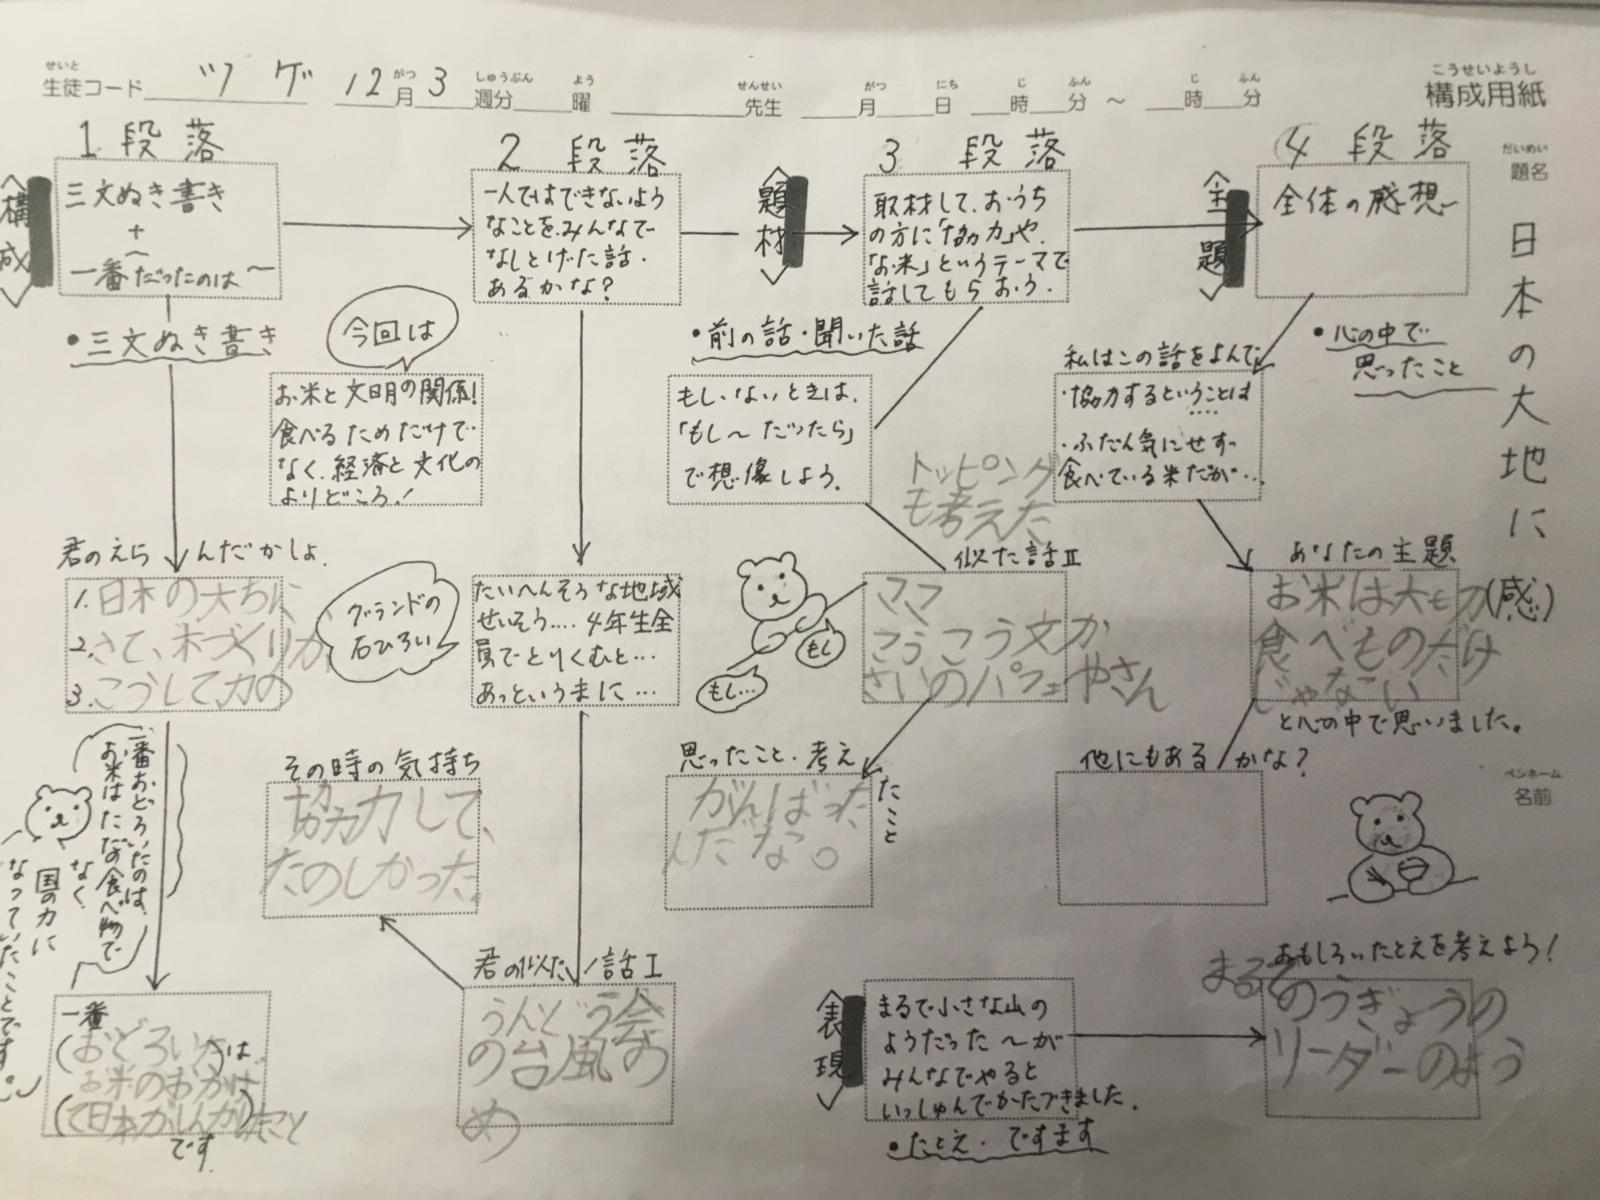 せいと
生徒コード ツゲ 12月3週分 曜 先生 月 日 時 分 ～ 時 分
がつ しゅうぶん よう せんせい がつ にち じ ふん じ ふん
こうせいようし
構成用紙
だいめい
題名
日本の大地に
ペンネーム
名前
構成
1段落
三文ぬき書き
+
一番だったのは～
・三文ぬき書き
君のえらんだかしょ
1.日本の大ちに
2.さて、木づくりが
3.こうして力の
一番おどろいたのは、
お米はただの食べ物で
なく
国の力に
なっていたことです。
一番
(おどろいた)は
お米のおかげ
(で日本がしんかしたこと
です
2段落
一人ではできないよう
なことを、みんなで
なしとげた話.
あるかな?
今回は
お米と文明の関係!
食べるためだけで
なく、経済と文化の
よりどころ!
グランドの
石ひろい
たいへんそうな地域
せいそう....4年生全
員でとりくむと...
あっというまに...
君の似た話I
うんどう会
の台風の
め
その時の気持ち
協力して、
たのしかった。
題材
3段落
取材して、おうち
の方に「協力」や、
「お米」というテーマで
話してもらおう.
・前の話・聞いた話
もし、ないときは、
「もし～だったら」
で想像しよう.
トッピング
も考えた
似た話II
ママ
こうこう文か
さいのパフェやさん
もし
もし...
思ったこと・考え
たこと
がんばった
んだな。
主題
4段落
全体の感想
・心の中で
思ったこと
私はこの話をよんで、
・協力するということは
....
・ふだん気にせず
食べている米だが...
あなたの主題
(感)
お米は大もり
食べものだけ
じゃない
と心の中で思いました。
他にもあるかな?
表現
まるで小さな山の
ようだった～が
みんなでやると
いっしゅんでかたづきました.
・たとえ・ですます
おもしろいたとえを考えよう!
まるで
のうぎょうの
リーダーのよう